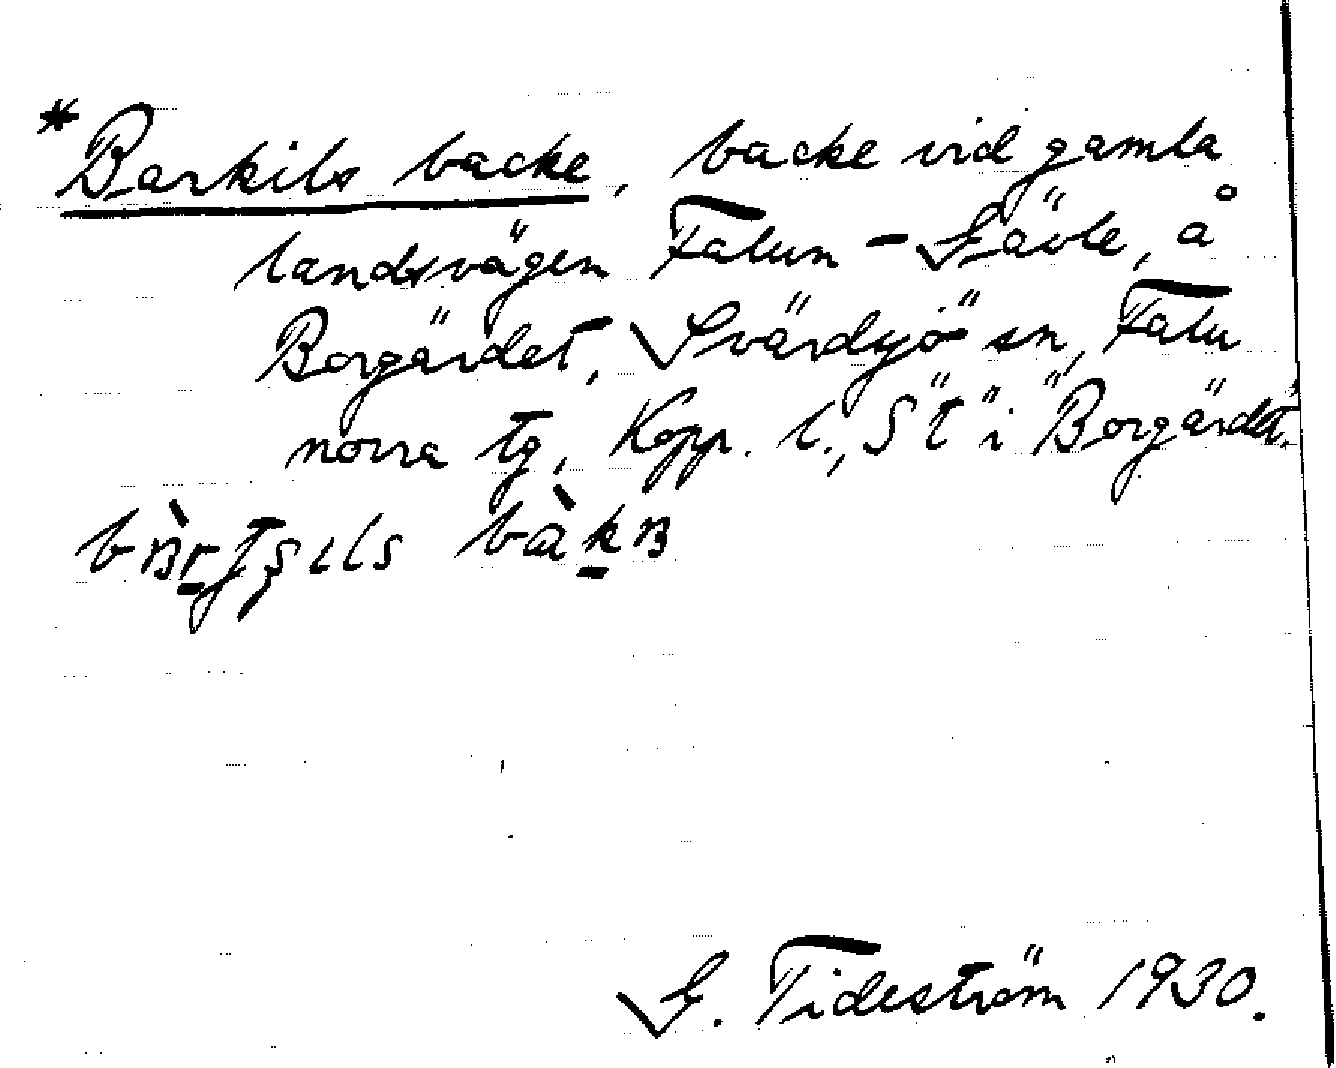 *Barkils backe, backe vid gamla
landsvägen Falun - Gävle, å
Borgärdet, Svärdsjö sn, Falu
norra tg, Kopp. l., S "t" i Borgärdet.
G. Tideström 1930.